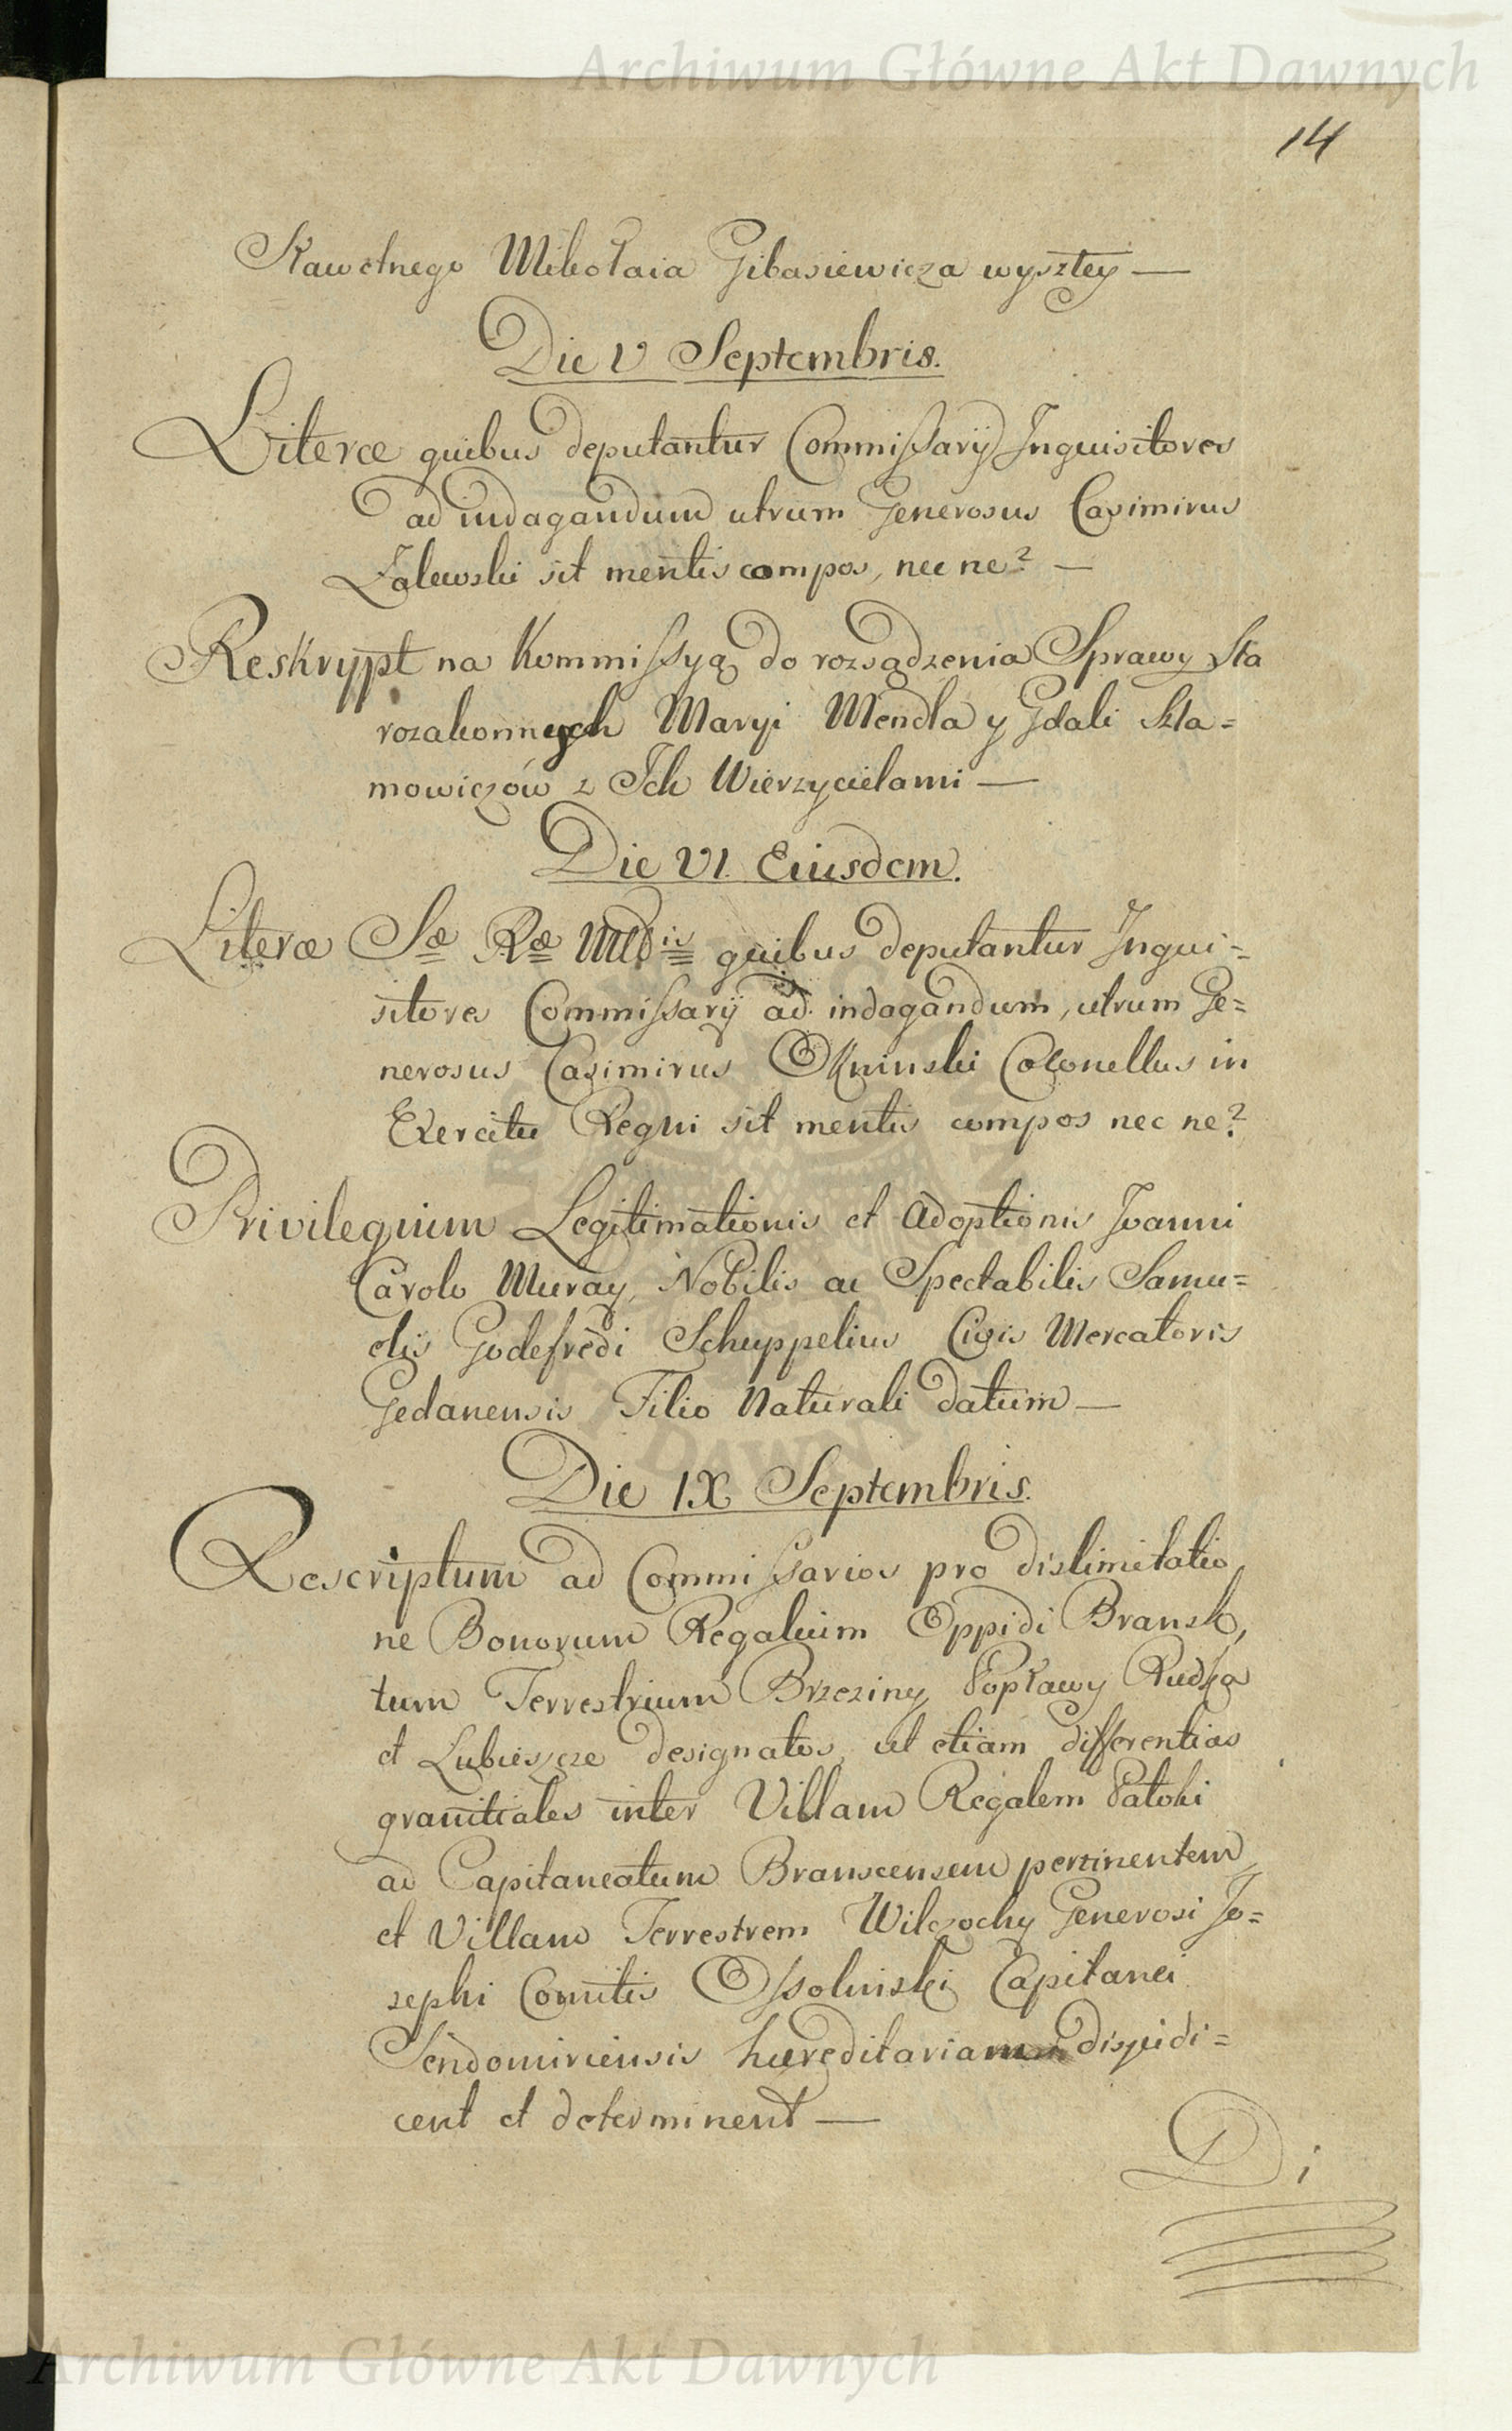 Archiwum Główne Akt Dawnych
14
Sławetnego Mikołaia Gibasiewicza wyszłey —
Die V Septembris.
Literæ quibus deputantur Commissarij Inquisitores
ad indagandum utrum Generosus Casimirus
Zalewski sit mentis compos, nec ne? —
Reskrypt na Kommissyą do rozsądzenia Sprawy Sta
rozakonnych Maryi Mendla y Gdali Szla=
mowiczów z Ich Wierzycielami —
Die VI. Eiusdem.
Literæ Sæ Ræ Mttis quibus deputantur Inqui=
sitores Commissarij ad indagandum, utrum Ge=
nerosus Casimirus Okninski Colonellus in
Exercitu Regni sit mentis compos nec ne?
Privilegium Legitimationis et Adoptionis Joanni
Carolo Muray, Nobilis ac Spectabilis Samu=
elis Godefredi Schuppelius Civis Mercatoris
Gedanensis Filio Naturali datum —
Die IX Septembris.
Rescriptum ad Commissarios pro dislimitatio
ne Bonorum Regalium Oppidi Bransk,
tum Terrestrium Brzeziny, Popławy Rudka
et Lubieszcze designatos, ut etiam differentias
granitiales inter Villam Regalem Patoki
ad Capitaneatum Branscensem pertinentem
et Villam Terrestrem Wilczochy Generosi Jo=
sephi Comitis Ossolinski Capitanei
Sendomiriensis hæreditariam disjudi=
cent et determinent —
Di
Archiwum Główne Akt Dawnych